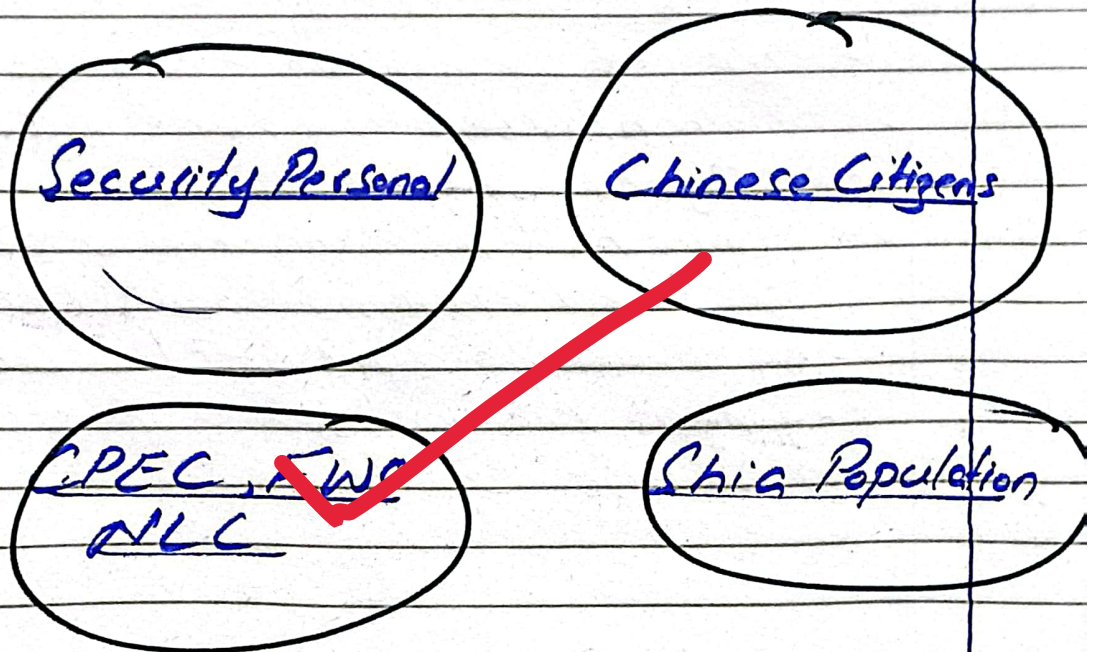 Security Personal
Chinese Citizens
CPEC, FWO
NLC
Shia Population